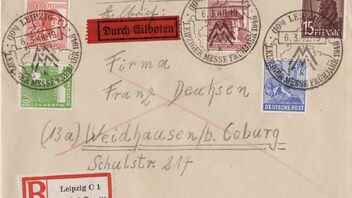 LEIPZIG C1
6.3.48-18
LEIPZIGER MESSE FRÜHJAHR 1948
Eilbrief!
Durch Eilboten
15 PFENNIG
DEUTSCHE POST
Firma
Franz Deuhsen
(13a) Weidhausen/b. Coburg
Schulstr. 217
R
Leipzig C 1